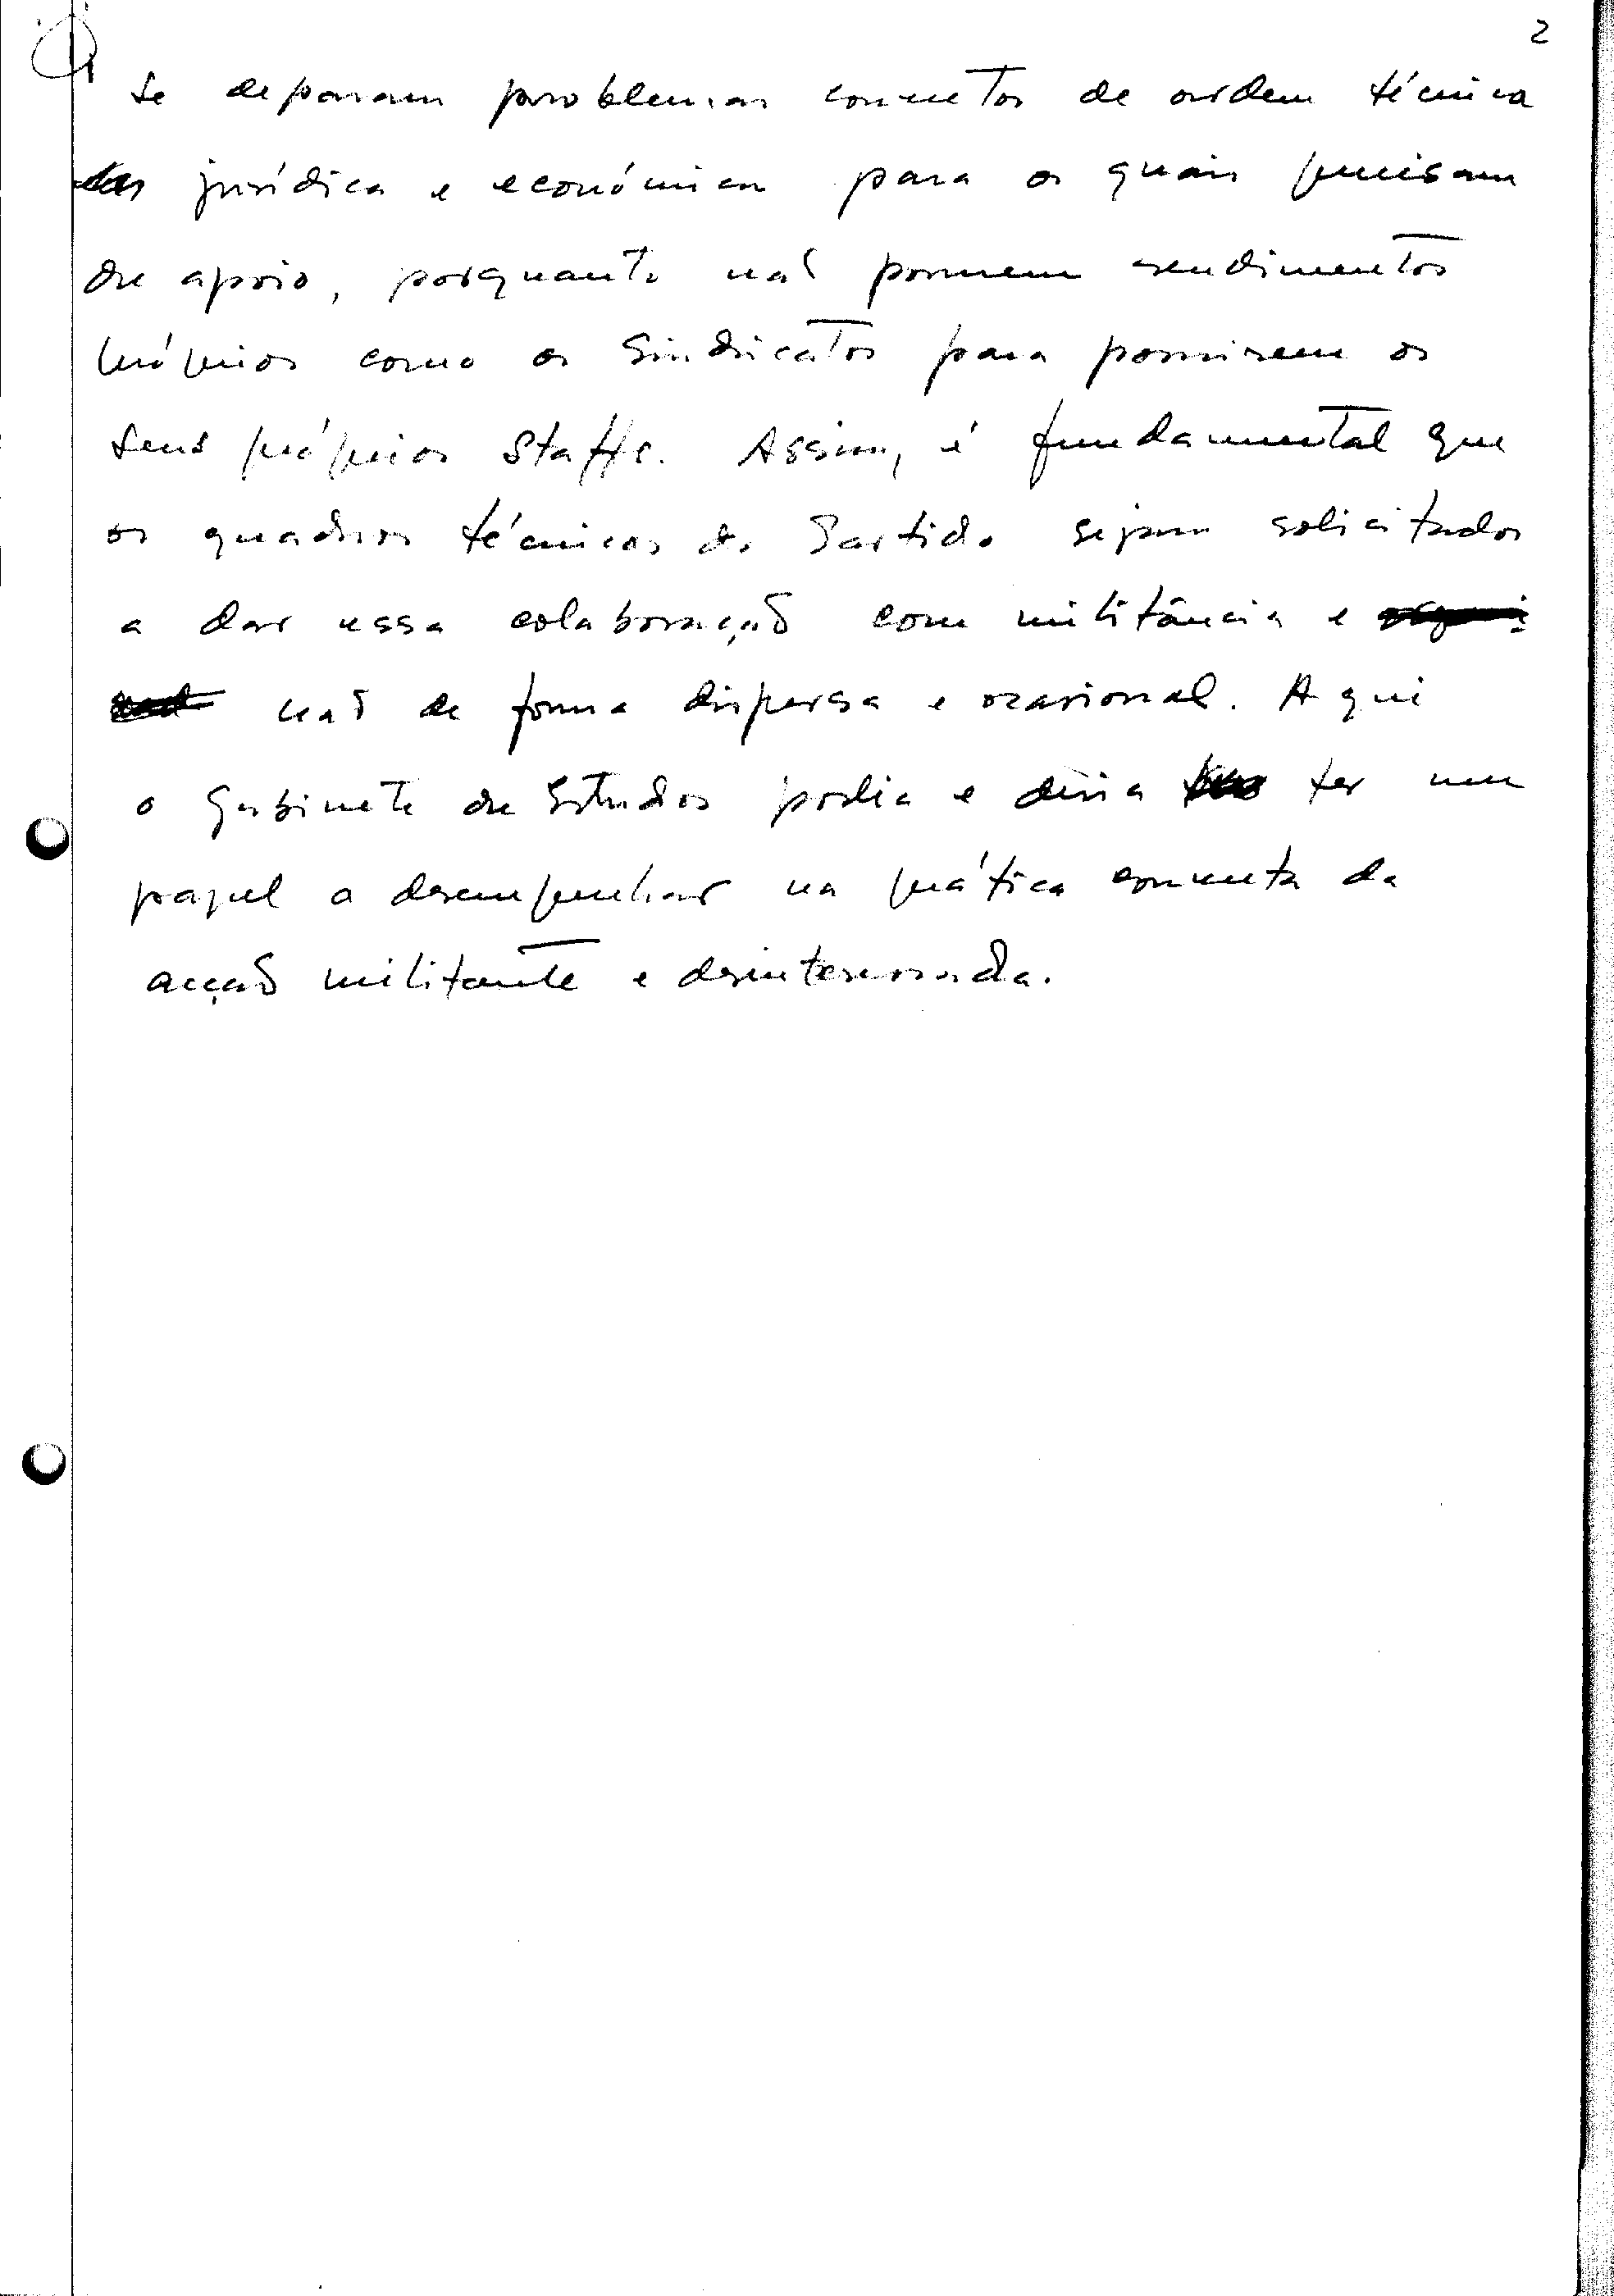 2
se deparam problemas concretos de ordem técnica
jurídica e económica para os quais precisam
de apoio, porquanto não possuem rendimentos
próprios como os Sindicatos para possuirem os
seus próprios Staffs. Assim, é fundamental que
os quadros técnicos do Partido sejam solicitados
a dar essa colaboração com militância e
não de forma dispersa e ocasional. Aqui
o Gabinete de Estudos podia e devia ter um
papel a desempenhar na prática concreta da
acção militante e desinteressada.